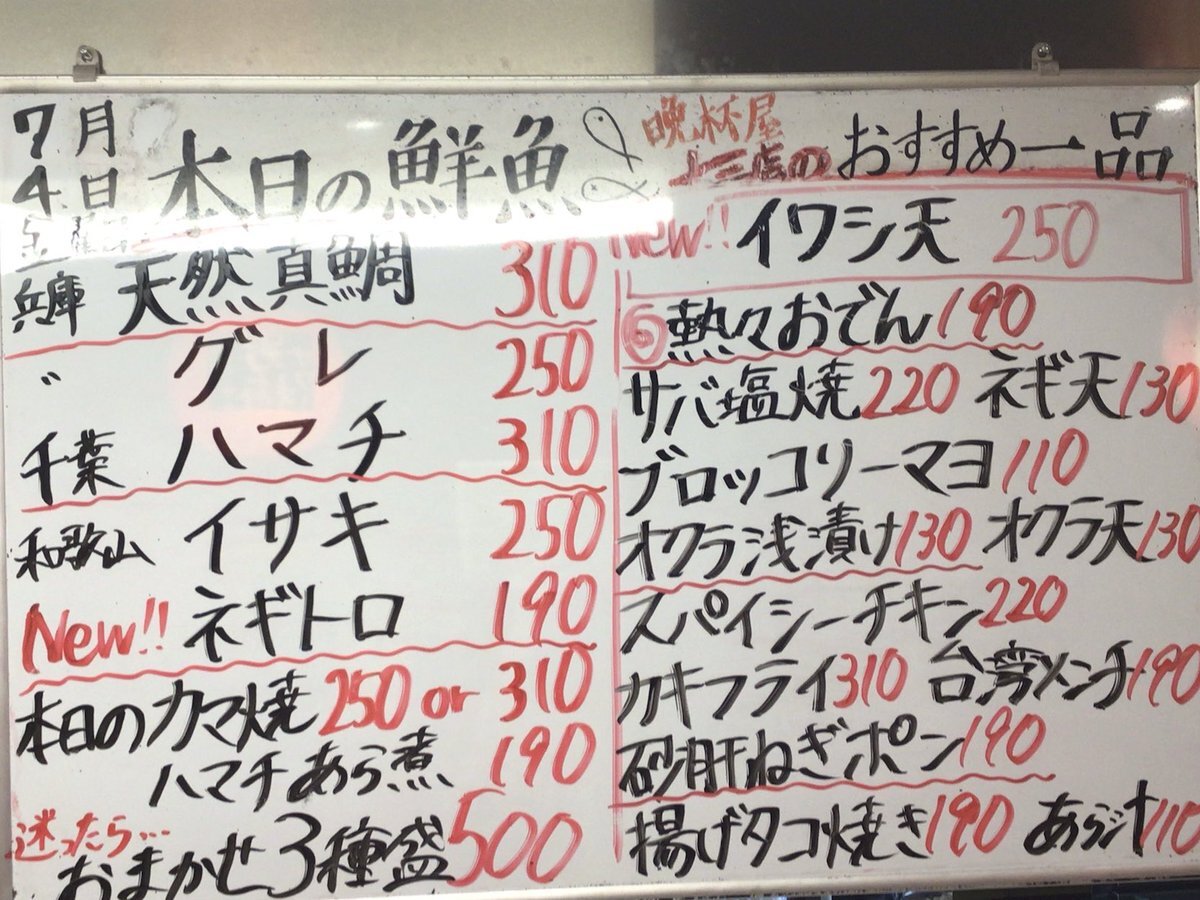 7月
4日
本日の鮮魚
兵庫 天然真鯛 310
〃 グレ 250
千葉 ハマチ 310
和歌山 イサキ 250
New!! ネギトロ 190
本日のカマ焼 250 or 310
ハマチあら煮 190
迷ったら…
おまかせ3種盛 500
晩杯屋
十三店のおすすめ一品
New!! イワシ天 250
⑥熱々おでん 190
サバ塩焼 220 ネギ天 130
ブロッコリーマヨ 110
オクラ浅漬け 130 オクラ天 130
スパイシーチキン 220
カキフライ 310 台湾メンチ 190
砂肝ねぎポン 190
揚げタコ焼き 190 あら汁 110